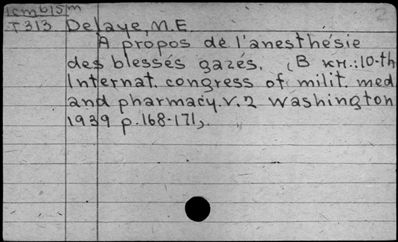 icmbl5m
T313 Delaye, M.E.
A propos de l'anesthésie
des blessés gazés. (В кн.: 10-th
Internat. congress of milit. med
and pharmacy. v. 2 Washington
1939 p. 168-171).